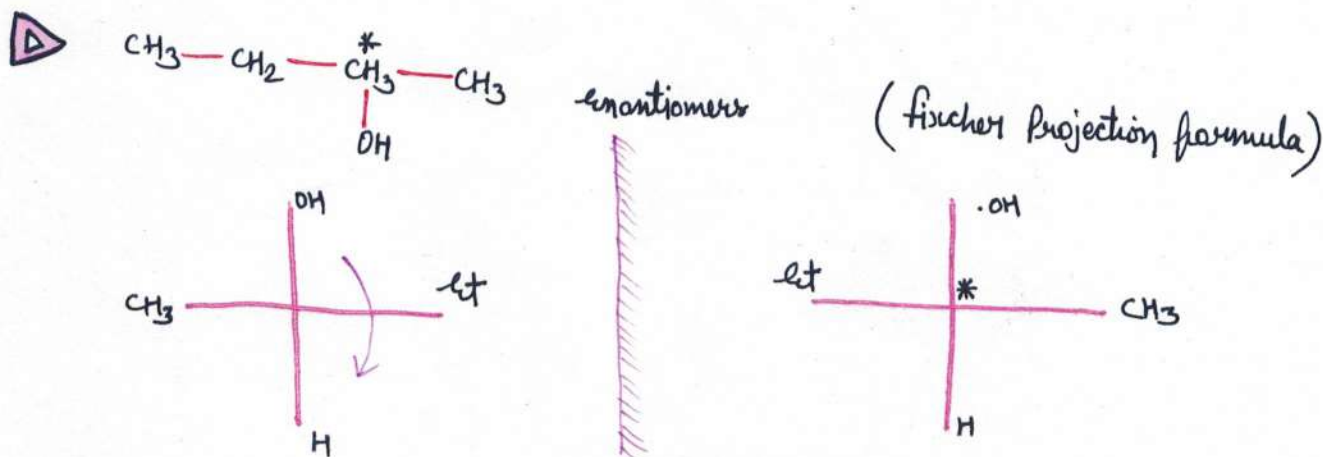 CH3 — CH2 — *CH3 — CH3
OH
enantiomers
(fischer Projection formula)
OH
CH3
Et
H
.OH
Et
*
CH3
H